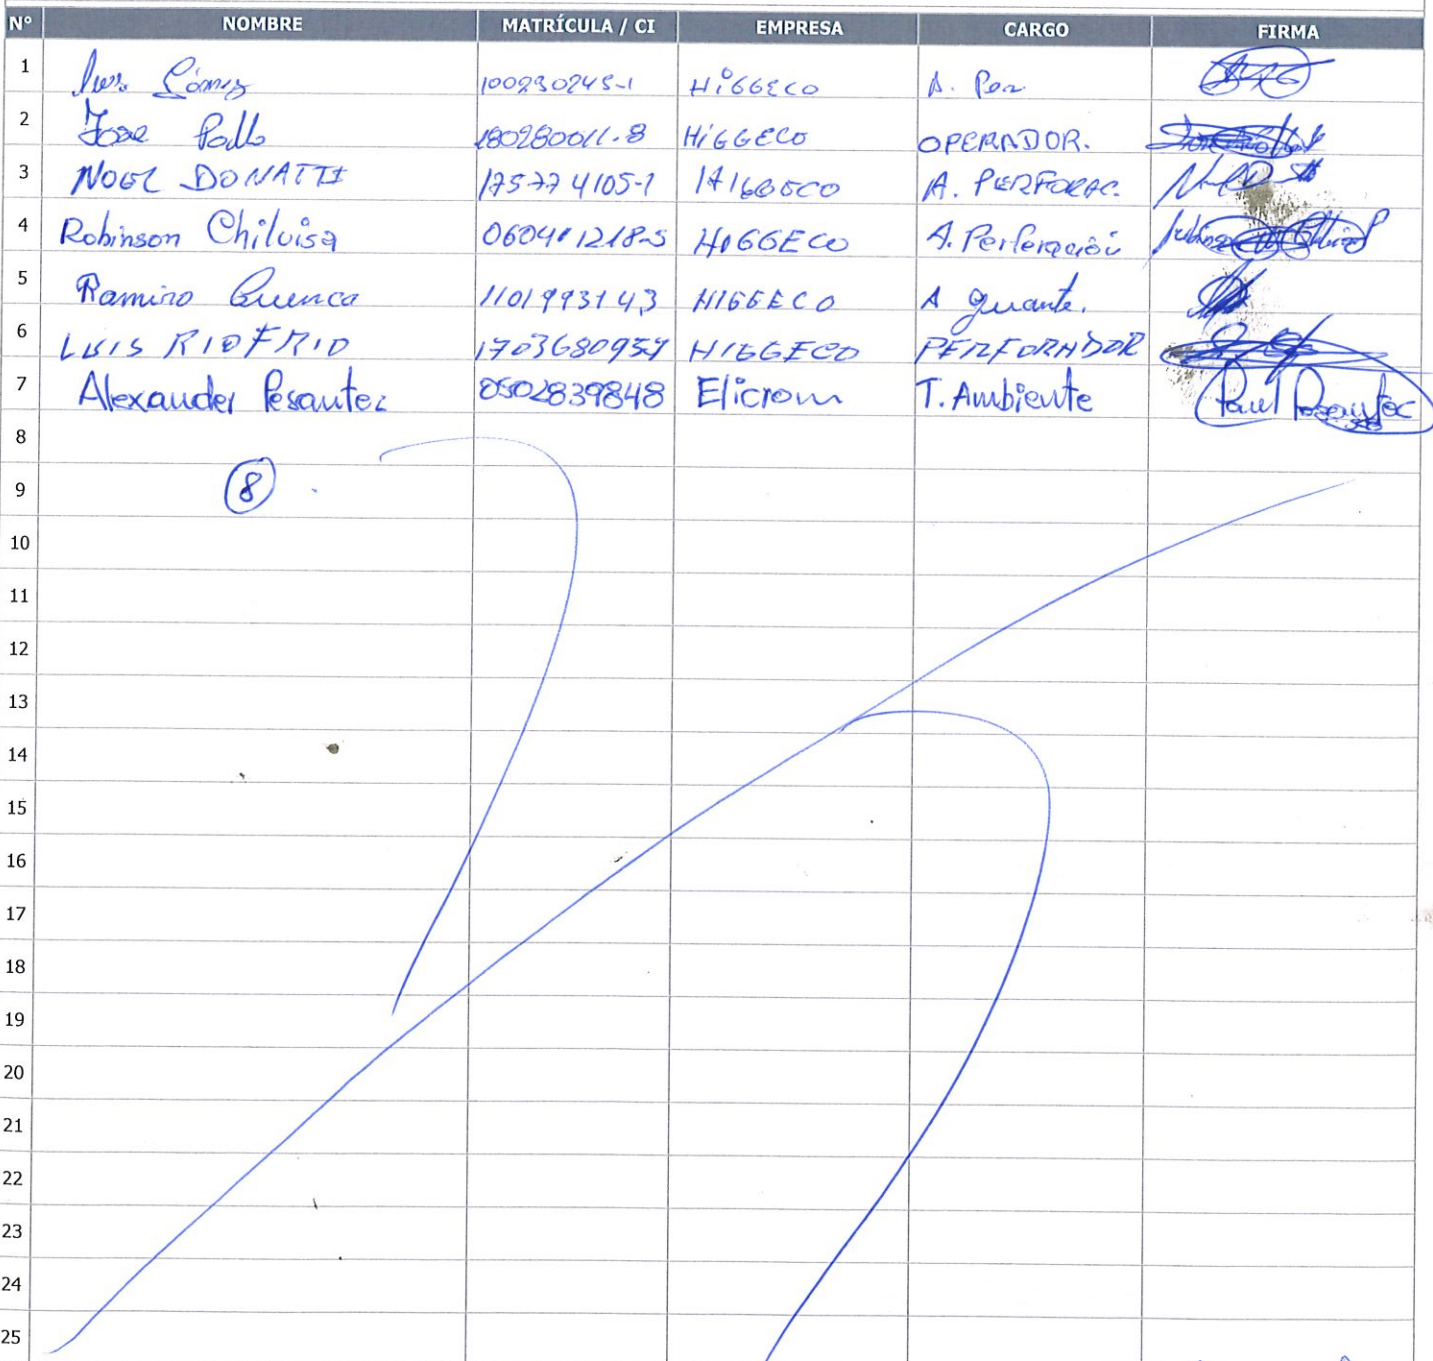 N° NOMBRE MATRÍCULA / CI EMPRESA CARGO FIRMA
1 Gómez 100230245-1 HiGGECO A. Per
2 Jose Pollo 180280011-8 HiGGECO OPERADOR.
3 NOEL DONATTI 175774105-1 HIGGECO A. PERFORAC.
4 Robinson Chiluisa 060401218-5 HIGGECO A. Perforación
5 Ramiro Cuenca 1101993143 HIGGECO A guante.
6 LUIS RIOFRIO 1703680957 HIGGECO PERFORADOR
7 Alexander Pesantez 0502839848 Elicrom T. Ambiente Paul Pesantez
8
9 8
10
11
12
13
14
15
16
17
18
19
20
21
22
23
24
25